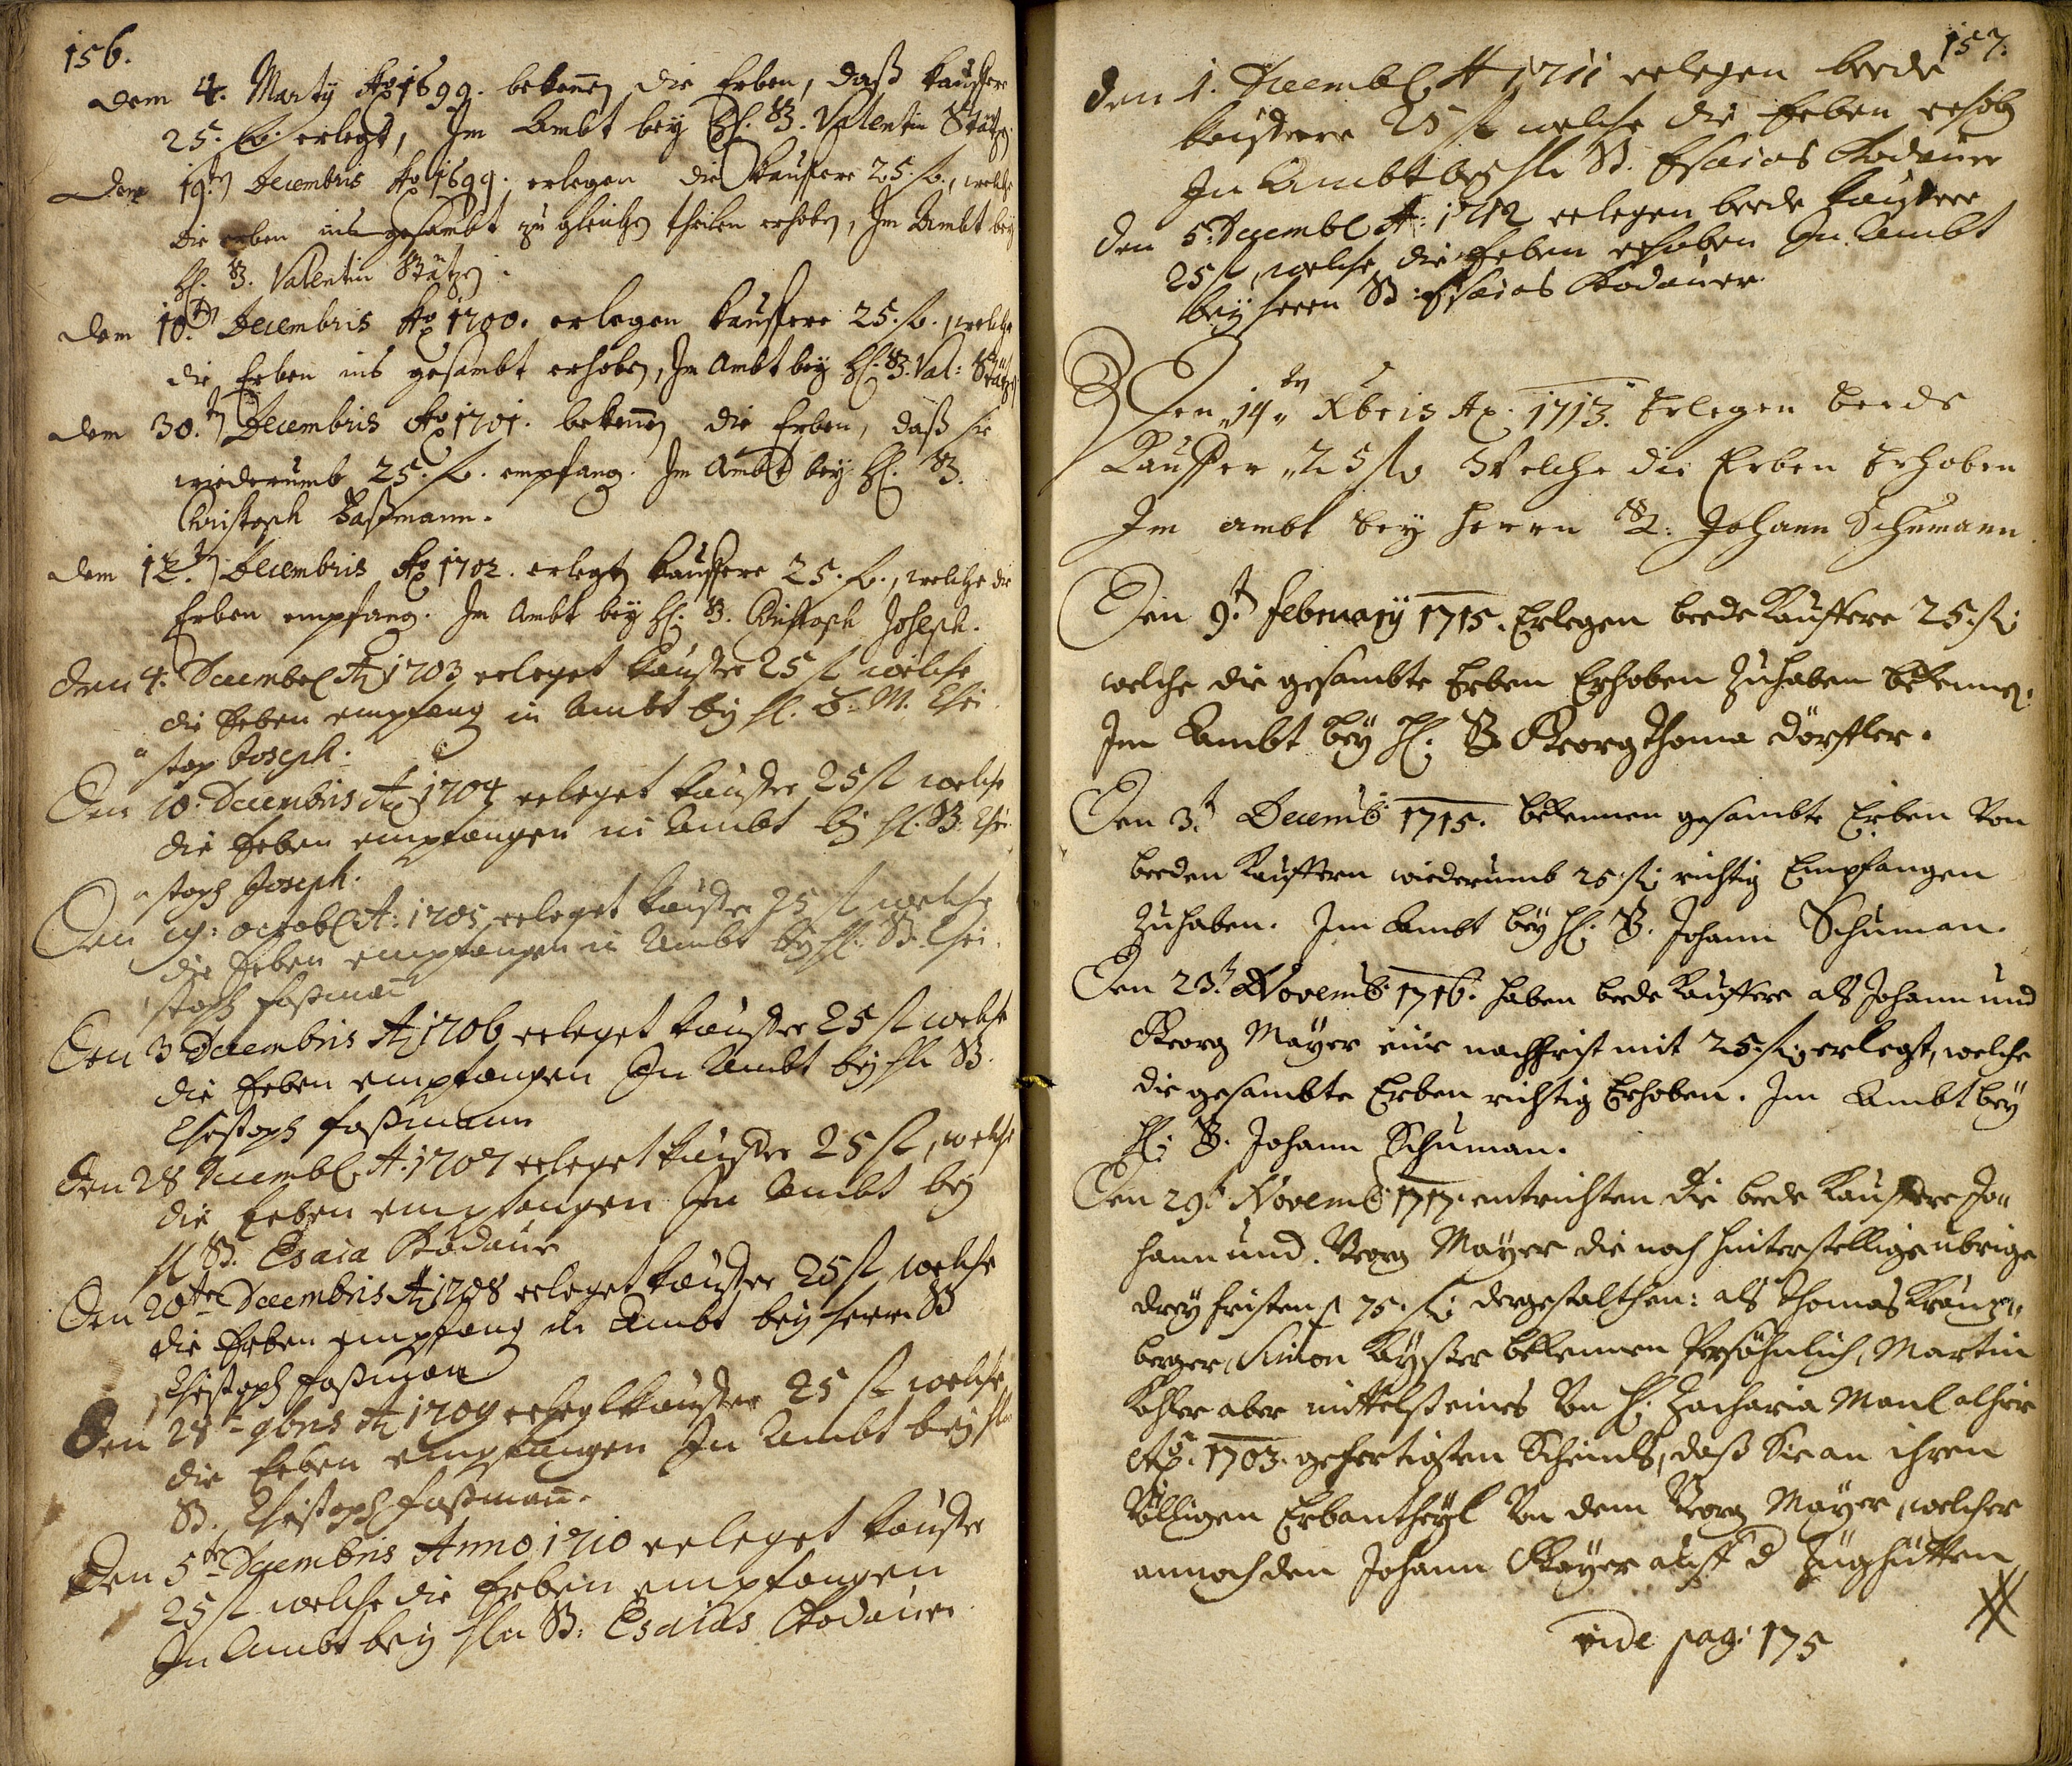 156.
dem 4. Marty Ao 1699. bekennen die Erben, daß kauffere
25. fl. erlegt, Im Ambt bey H. B. Valentin Stützen
den 19.ten Decembris Ao 1699. erlegen die Kaufere 25. fl., welche
die erben ins gesambt zu gleichen theilen erhoben, Im Ambt bey
H. B. Valentin Stützen.
dem 10.ten Decembris Ao 1700. erlegen kauffere 25. fl., welche
die Erben ins gesambt erhoben, Im Ambt bey H. B. Val: Stützen
dem 30.ten Decembris Ao 1701. bekennen die Erben, daß sie
wiederumb 25. fl. empfang. Im Ambt bey H. B.
Christoph Faßmann.
dem 12.ten Decembris Ao 1702. erlegen kauffere 25. fl., welche die
Erben empfang. Im Ambt bey H. B. Christoph Joseph.
den 4. Decembr A 1703 erleget kauffer 25 fl welche
die Erben empfang in Ambt bey H. B. M. Chri
stop Joseph.
Den 10. Decembris A 1704 erleget kauffer 25 fl welche
die Erben empfangen in Ambt bey H. B. Chri
stoph Joseph.
Den 19: octobr A: 1705 erleget kauffer 25 fl welche
die Erben empfangen in Ambt bey H. B. Chri
stoph Faßmañ
Den 3 Decembris A 1706 erleget kauffer 25 fl welche
die Erben empfangen In Ambt bey Hn B.
Christoph Faßmann
den 28 Decembr A. 1707 erleget kauffer 25 fl, welche
die Erben empfangen In Ambt bey
H B. Esaia Rodauer
Den 20ten Decembris A 1708 erleget kauffer 25 fl welche
die Erben empfang in Ambt bey Herrn B
Christoph Faßman
Den 28t 9bris A 1709 erlegt kauffer 25 fl welche
die Erben empfangen In Ambt bey Hn
B. Christoph Faßmañ.
Den 5ten Decembris Anno 1710 erleget kauffer
25 fl welche die Erben empfangen
In Ambt bey Hn B: Esaias Rodauer
157.
den 1. Decembr A 1711 erlegen beede
kauffere 25 fl welche die Erben erhob
In Ambt bey Hn B. Esaias Rodauer
den 5. Decembr A: 1712 erlegen beede kauffere
25 fl, welche die Erben erhoben In Ambt
bey Herrn B: Esaias Rodauer
Den 14ten Xbris Ao. 1713. Erlegen beede
Kauffer 25 fl Welche die Erben Erhoben
Im ambt bey Herrn B: Johann Schumann
Den 9.t February 1715. Erlegen beede Kauffere 25. fl:
welche die gesambte Erben Erhoben zuhaben bekennen.
Im Ambt bey H: B. Georg Thoma Dörffler.
Den 3.t Decemb: 1715. bekennen gesambte Erben von
beeden Kauffern wiederumb 25. fl: richtig Empfangen
zuhaben. Im Ambt bey H: B. Johann Schuman.
Den 23.t Novemb: 1716. haben beede Kauffere als Johann und
Georg Mayer eine nachfrist mit 25. fl: erlegt, welche
die gesambte Erben richtig Erhoben. Im Ambt bey
H: B. Johann Schuman.
Den 29.t Novemb: 1717. entrichten die beede Kauffere Jo
hann und Georg Mayer die noch hinterstellige ubrige
drey fristen p 75. fl: dergestalthen: als Thomas
berger, Simon bekennen Persöhnlich, Martin
aber mittelst eines von H: Zacharia Manl alhier
Ao. 1703. gefertigten Scheins, daß Sie an ihren
völligen Erbantheyl von dem Georg Mayer, welcher
annoch den Johann Mayer auff d Zughütten
vide pag: 175